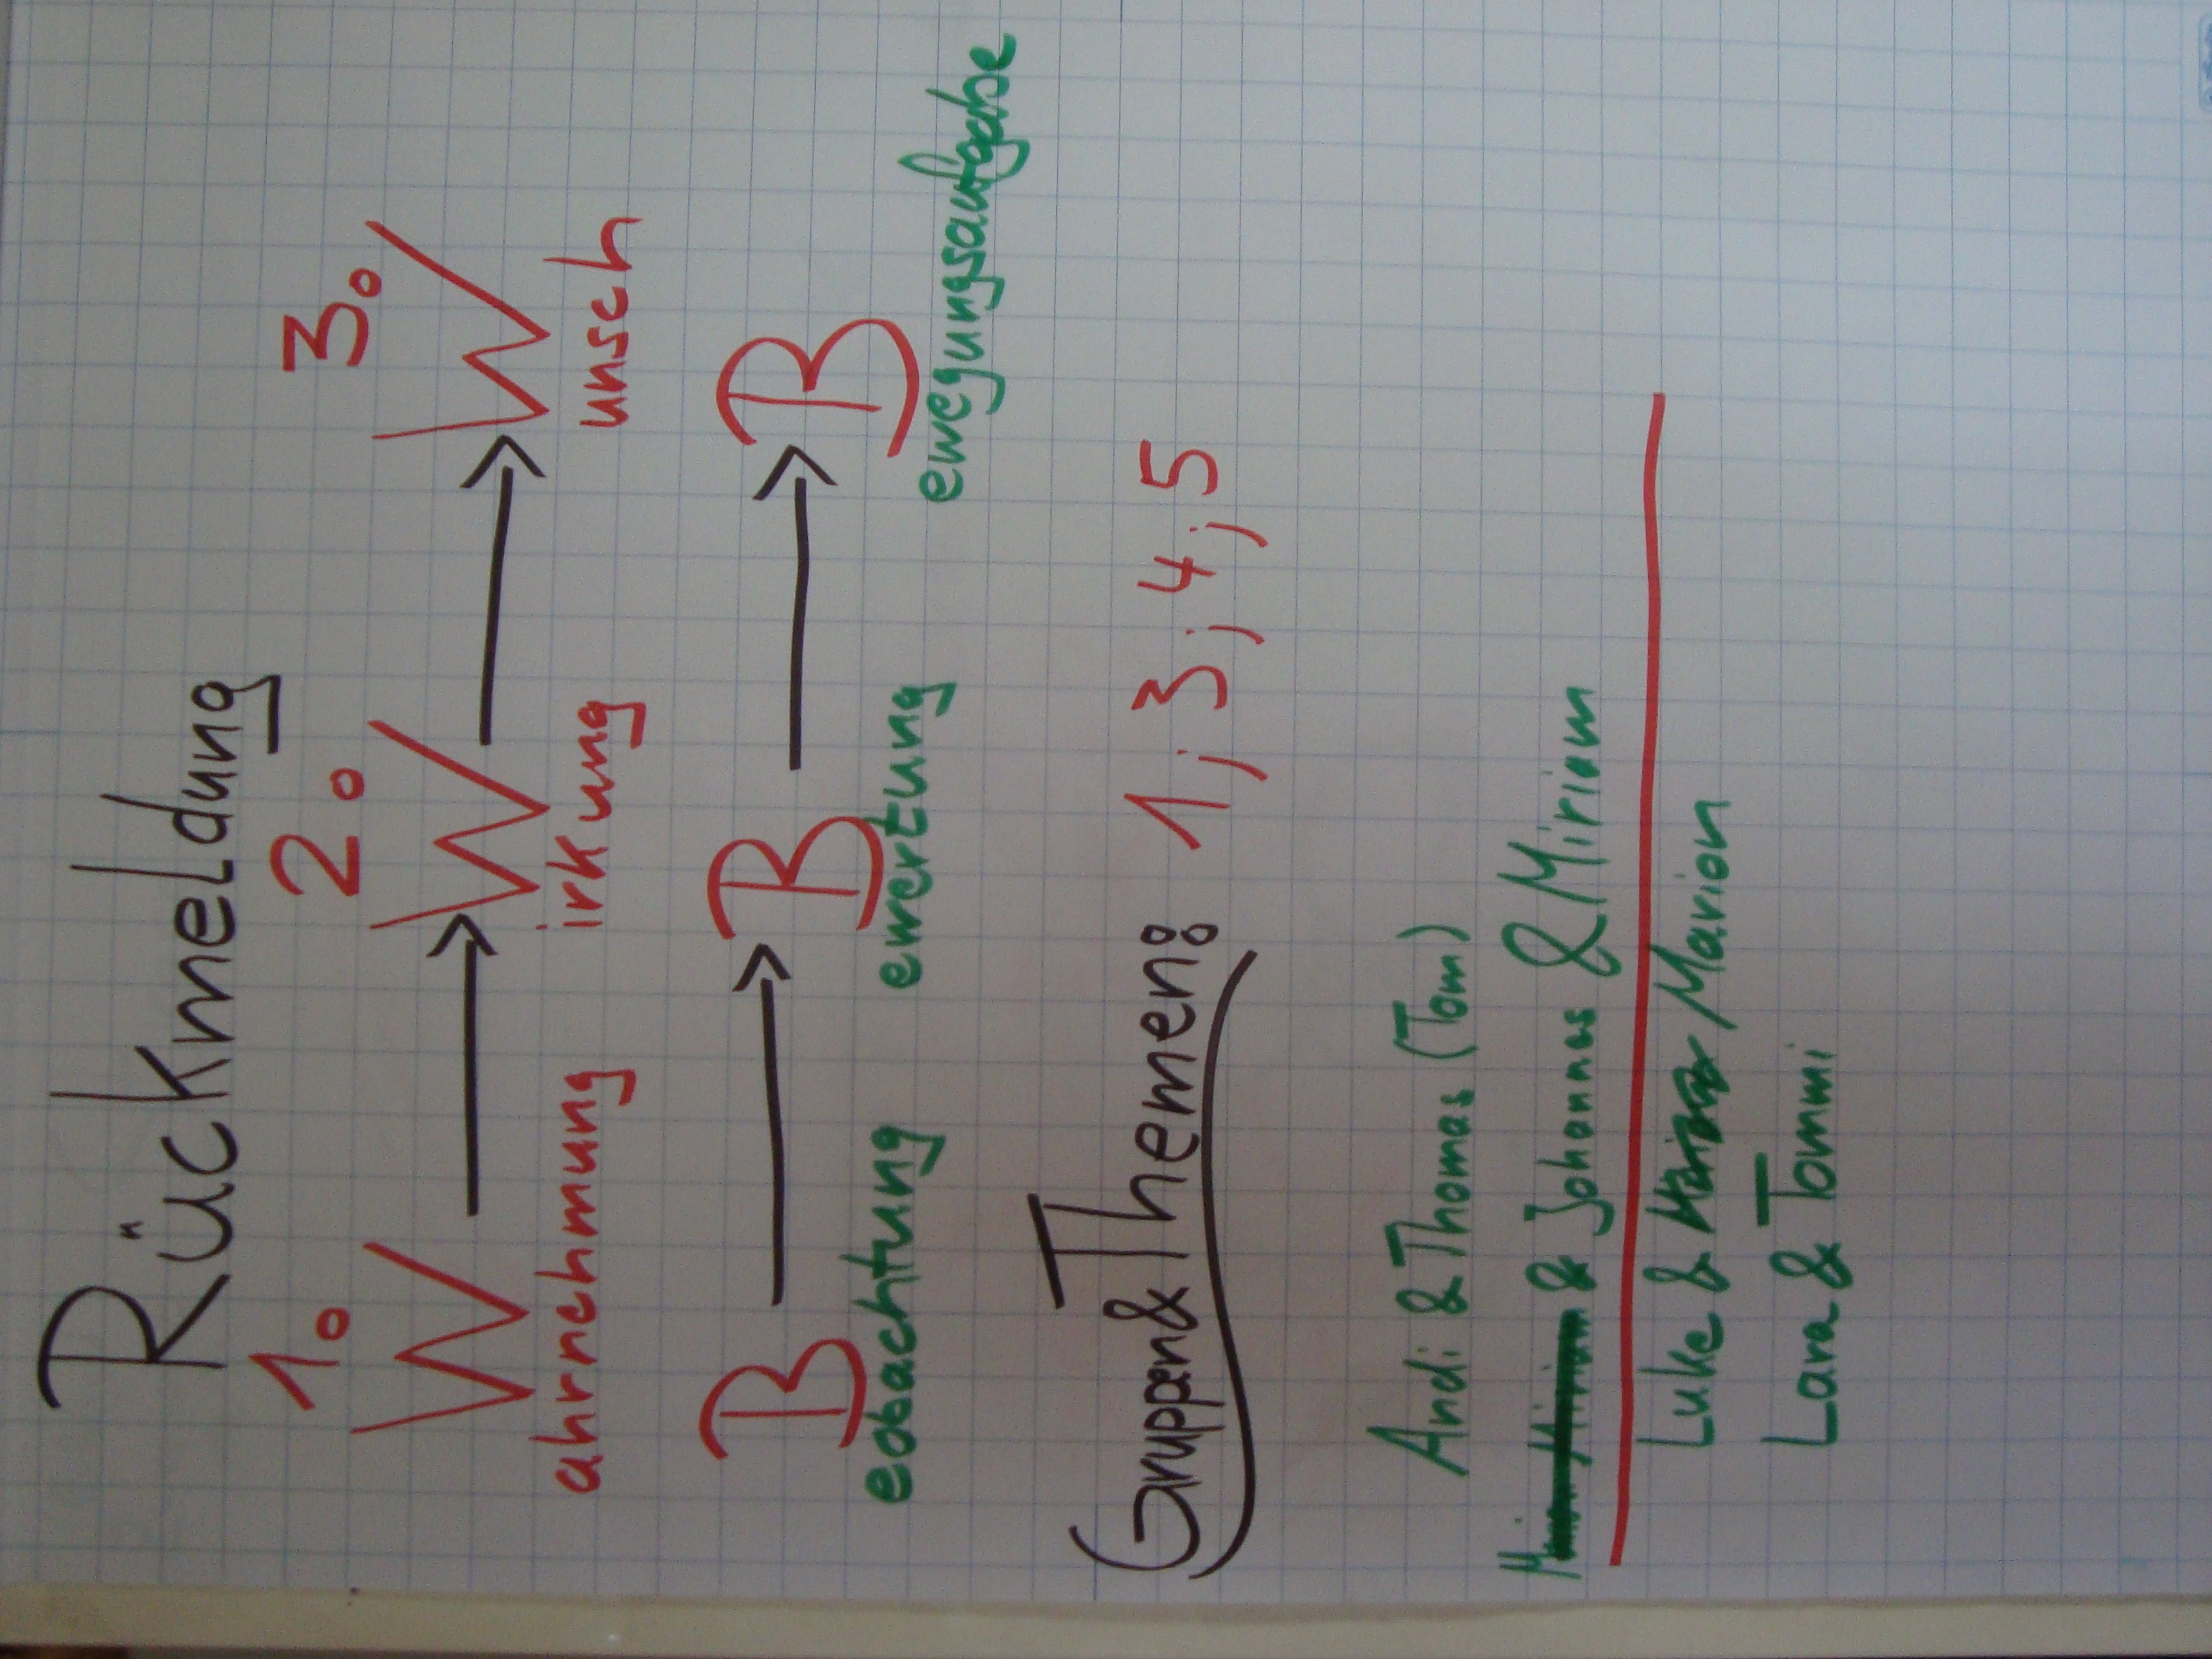 Rückmeldung
1. 2. 3.
Wahrnehmung → Wirkung → Wunsch
Beobachtung → Bewertung → Bewegungsaufgabe
Gruppen & Themen: 1, 3, 4, 5
Andi & Thomas (Tom)
& Johannes & Miriam
Luke & Marion
Lara & Tommi